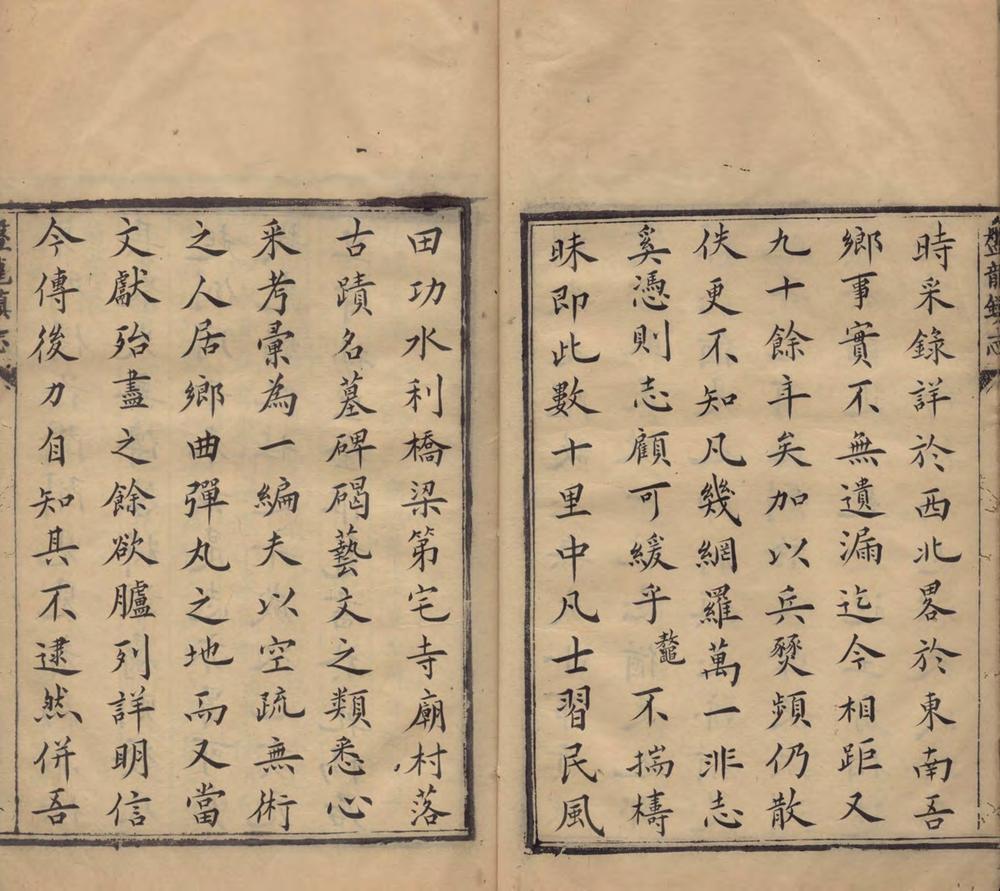 盤龍鎮志
時采錄詳於西北畧於東南吾
鄉事實不無遺漏迄今相距又
九十餘年矣加以兵燹頻仍散
佚更不知凡幾網羅萬一非志
奚憑則志顧可緩乎鼇不揣檮
昧即此數十里中凡士習民風
田功水利橋梁第宅寺廟村落
古蹟名墓碑碣藝文之類悉心
采考彙為一編夫以空疏無術
之人居鄉曲彈丸之地而又當
文獻殆盡之餘欲臚列詳明信
今傳後力自知其不逮然併吾
盤龍鎮志